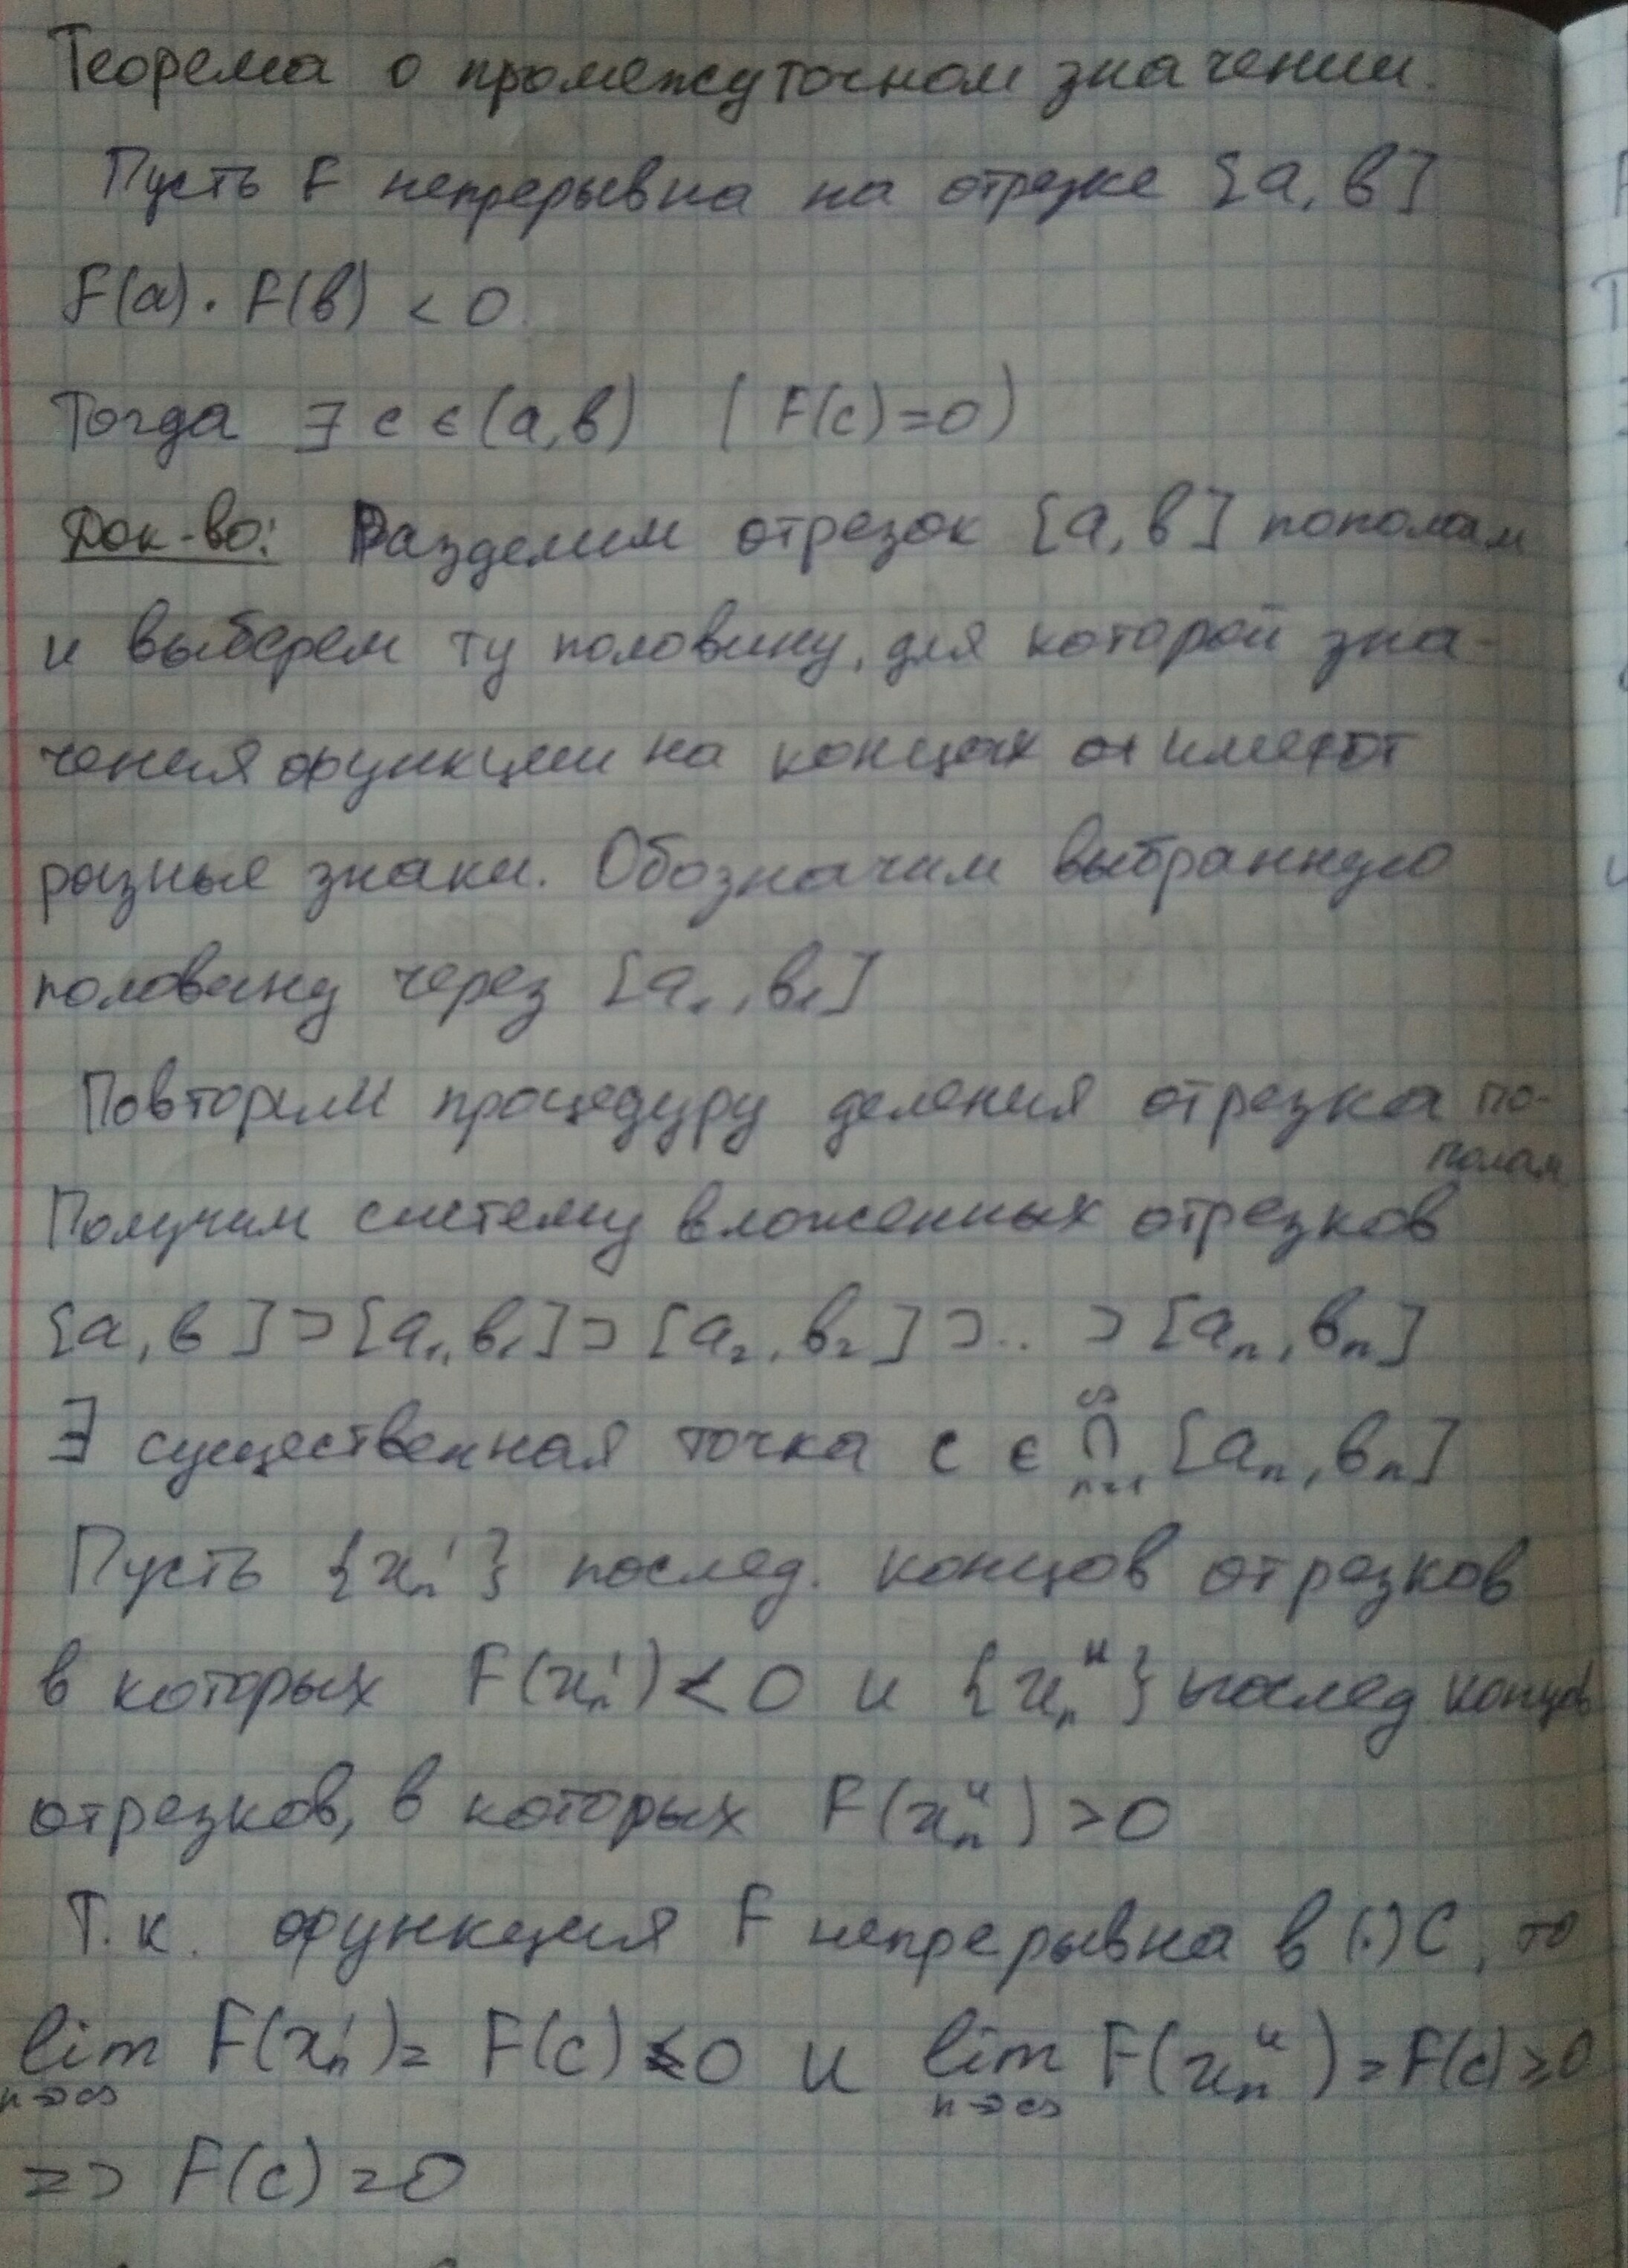 Теорема о промежуточном значении.
Пусть F непрерывна на отрезке [a, b]
F(a) · F(b) < 0
Тогда ∃ c ∈ (a, b) ( F(c) = 0 )
Док-во: Разделим отрезок [a, b] пополам
и выберем ту половину, для которой зна-
чения функции на концах имеют
разные знаки. Обозначим выбранную
половину через [a₁, b₁]
Повторим процедуру деления отрезка по-
полам
Получим систему вложенных отрезков
[a, b] ⊃ [a₁, b₁] ⊃ [a₂, b₂] ⊃ .. ⊃ [aₙ, bₙ]
∃ существенная точка c ∈ ∞ ∩ n=1 [aₙ, bₙ]
Пусть {xₙ'} послед. концов отрезков
в которых F(xₙ') < 0 и {xₙ"} послед концов
отрезков, в которых F(xₙ") > 0
Т.к. функция F непрерывна в (·) C, то
lim n→∞ F(xₙ') = F(c) ≤ 0 и lim n→∞ F(xₙ") = F(c) ≥ 0
=> F(c) = 0